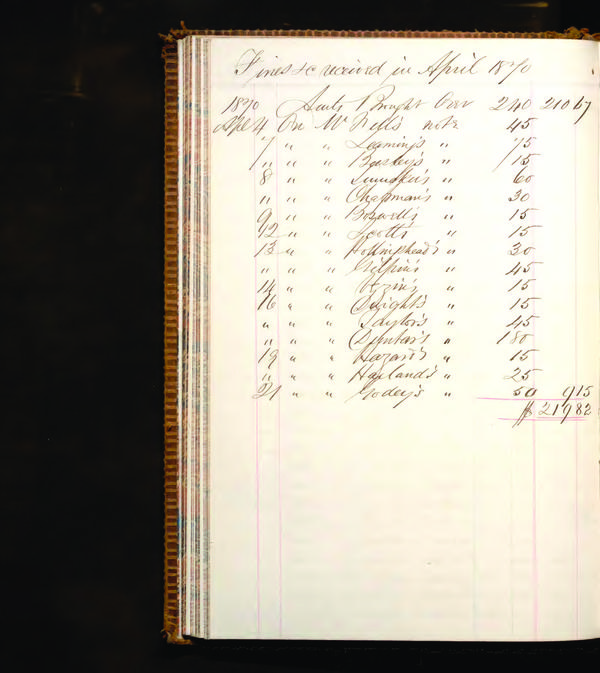 Fines &c received in April 1870
1870 Amts Brought Over 2 40 210 67
Apl 4 On Mr Fell's note 45
7 " " Leaming's " 75
" " " Bailey's " 15
8 " " " 60
" " " Chapman's " 30
9 " " Boswell's " 15
12 " " Scott's " 15
13 " " Hollinshead's " 30
" " " Gilpin's " 45
14 " " " 15
16 " " Dwight's " 15
" " " Taylor's " 45
" " " Dunbar's " 1 80
19 " " Hazard's " 15
" " " Harland's " 25
21 " " Godey's " 50 9 15
$ 219 82